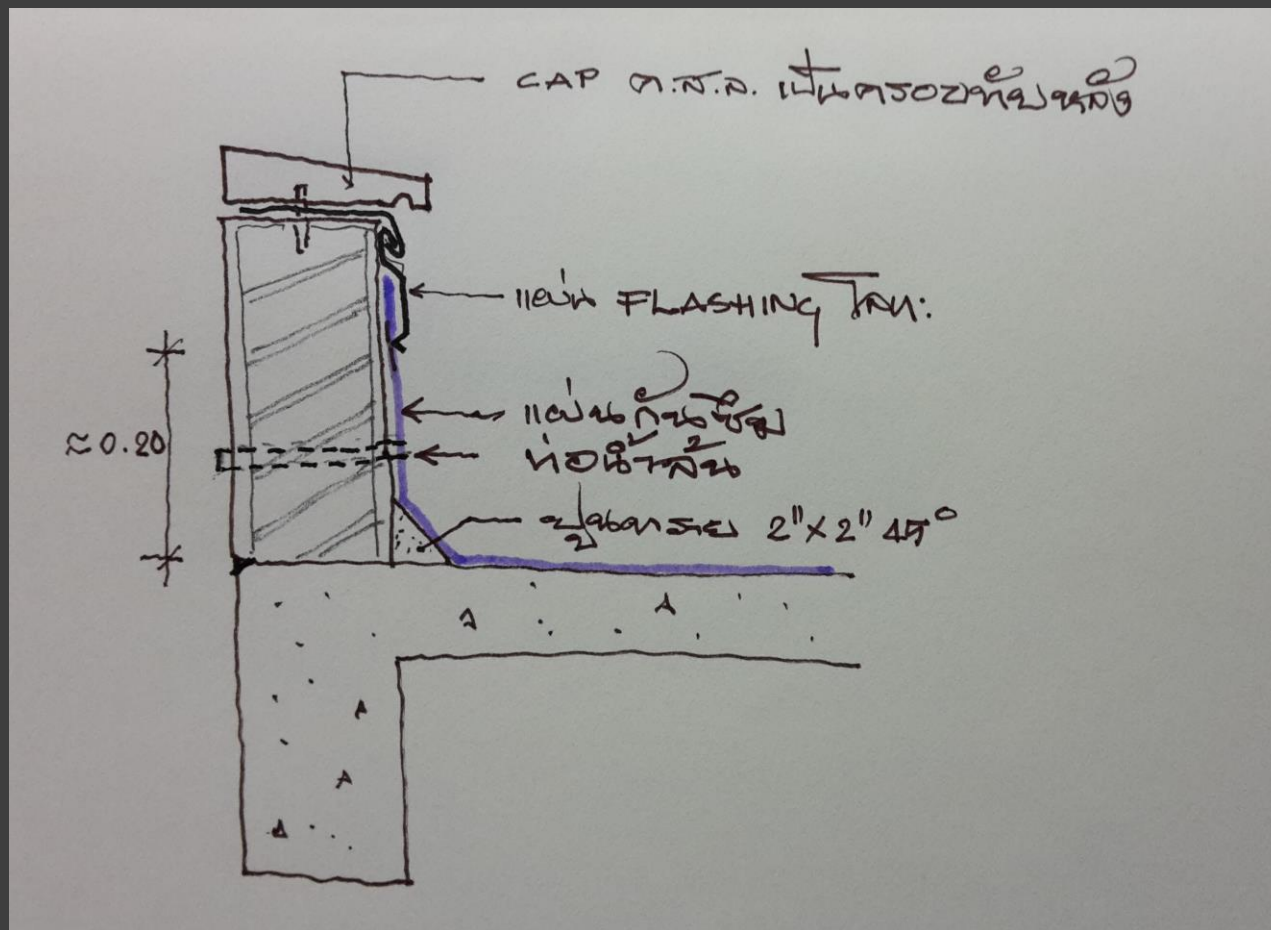 CAP ค.ส.ล. เป็นครอบทับหลัง
แผ่น FLASHING โลหะ
≈ 0.20
แผ่นกันซึม
ท่อน้ำล้น
ปูนทราย 2"x2" 45°